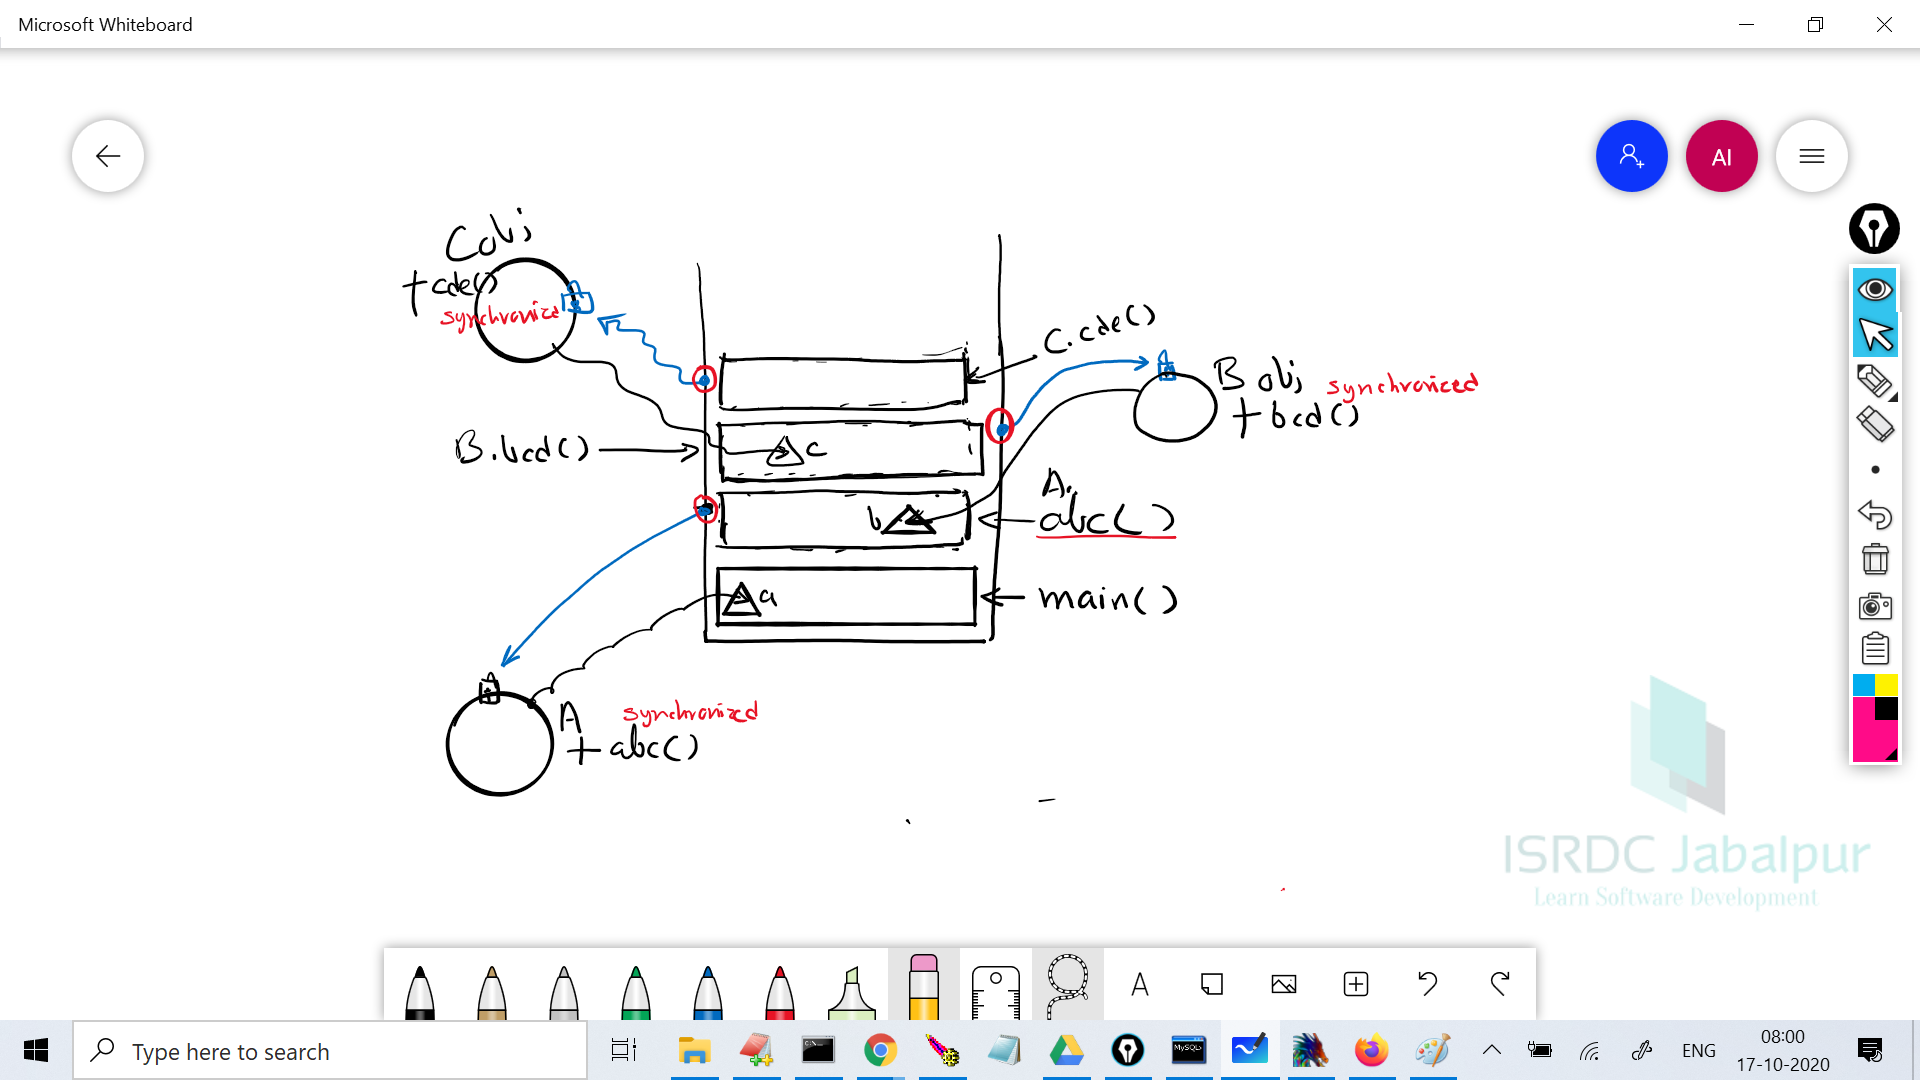 Microsoft Whiteboard
AI
C obj
+ cde()
synchronized
C.cde()
B obj synchronized
+ bcd()
B.bcd()
c
A.
abc()
b
a
main()
A synchronized
+ abc()
ISRDC Jabalpur
Learn Software Development
A
Type here to search
MySQL
ENG
08:00
17-10-2020